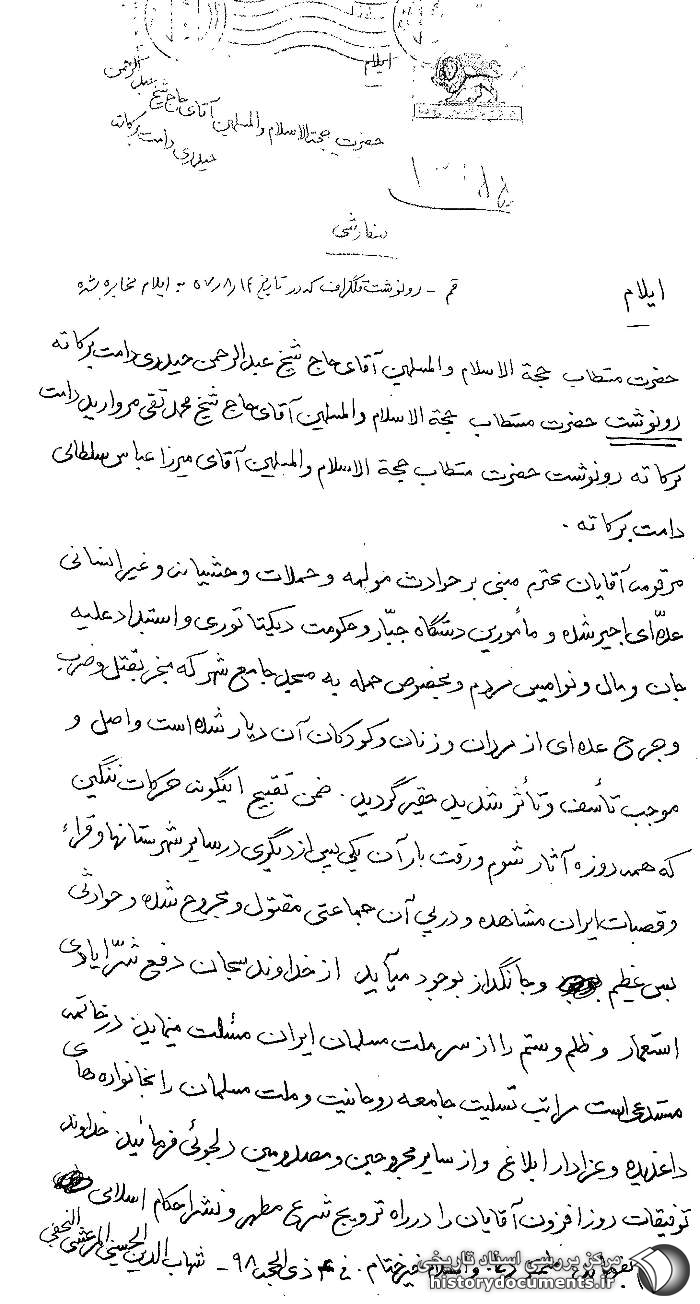 ایلام
حضرت حجةالاسلام والمسلمین آقای حاج شیخ عبدالرحمن
حیدری دامت برکاته
سفارشی
ایلام
قم - رونوشت تلگراف که در تاریخ ۵۷/۸/۱۴ به ایلام مخابره شده
حضرت مستطاب حجة الاسلام والمسلمین آقای حاج شیخ عبدالرحمن حیدری دامت برکاته
رونوشت حضرت مستطاب حجة الاسلام والمسلمین آقای حاج شیخ محمد تقی مروارید دامت
برکاته رونوشت حضرت مستطاب حجة الاسلام والمسلمین آقای میرزا عباس سلطانی
دامت برکاته .
مرقومه آقایان محترم مبنی بر حوادث مولمه و حملات وحشیانه و غیر انسانی
عدّه‌ای اجیر شده و مأمورین دستگاه جبّار و حکومت دیکتاتوری و استبداد علیه
جان و مال و نوامیس مردم و بخصوص حمله به مسجد جامع شهر که منجر بقتل و ضرب
و جرح عده‌ای از مردان و زنان و کودکان آن دیار شده است واصل و
موجب تأسف و تأثر شدید حقیر گردید . ضمن تقبیح اینگونه حرکات ننگین
که همه روزه آثار شوم و رقت بار آن یکی پس از دیگری در سایر شهرستانها و قراء
و قصبات ایران مشاهده و در پی آن جماعتی مقتول و مجروح شده و حوادثی
بس عظیم و جانگداز بوجود میآید از خداوند سبحان دفع شرّ ایادی
استعمار و ظلم و ستم را از سر ملت مسلمان ایران مسئلت مینماید در خاتمه
مستدعی است مراتب تسلیت جامعه روحانیت و ملت مسلمان را بخانواده های
داغدیده و عزادار ابلاغ و از سایر مجروحین و مصدومین دلجوئی فرمائید خداوند
توفیقات روز افزون آقایان را در راه ترویج شرع مطهر و نشر احکام اسلامی
بفرماید ملتمس دعا والسلام خیر ختام . فی ۴ ذی الحجه ۹۸ - شهاب الدین الحسینی المرعشی النجفی
مرکز بررسی اسناد تاریخی
historydocuments.ir